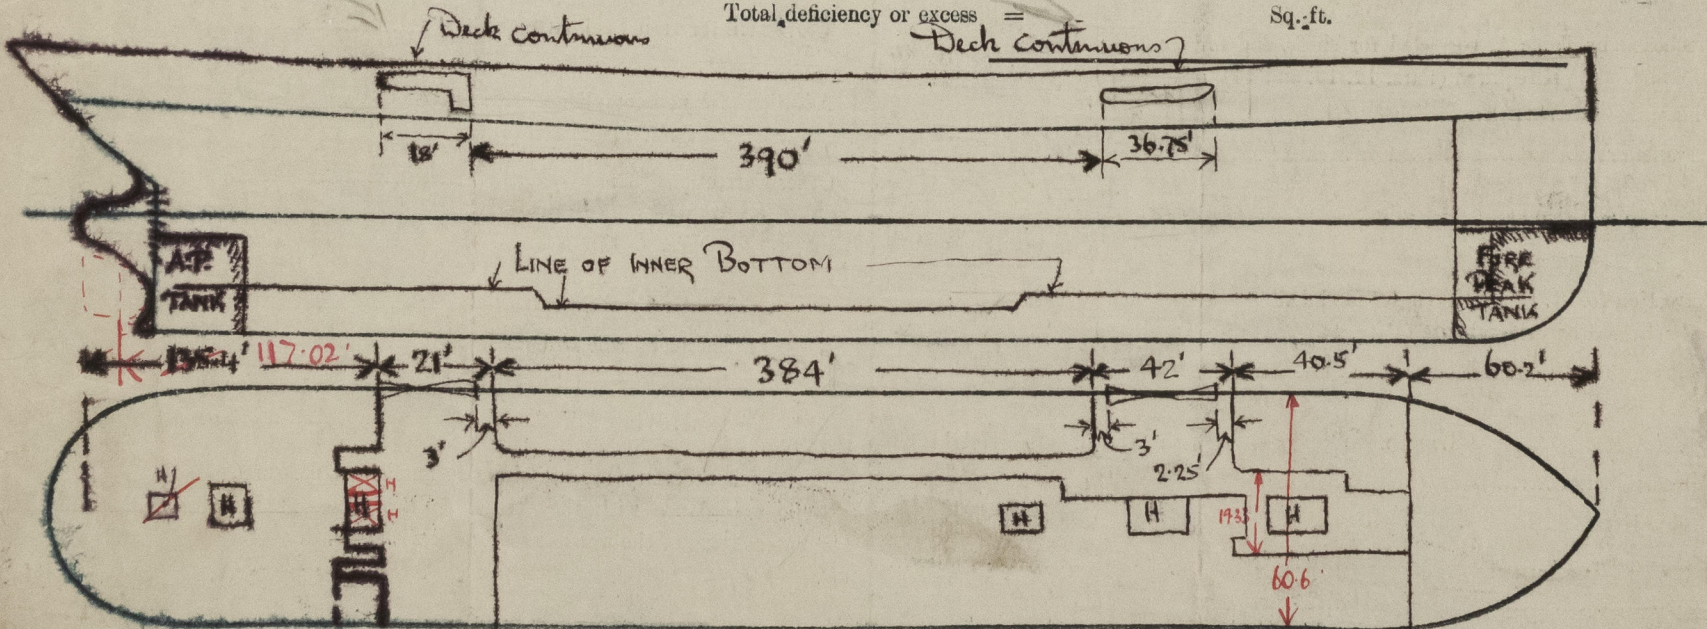 Total deficiency or excess = Sq. ft.
Deck continuous
Deck continuous
18'
390'
36.75'
A.P.
TANK
LINE OF INNER BOTTOM
FORE
PEAK
TANK
117.02'
21'
384'
42'
40.5'
60.2'
3'
3'
2.25'
H
H
H
H
H
H
H
H
60.6